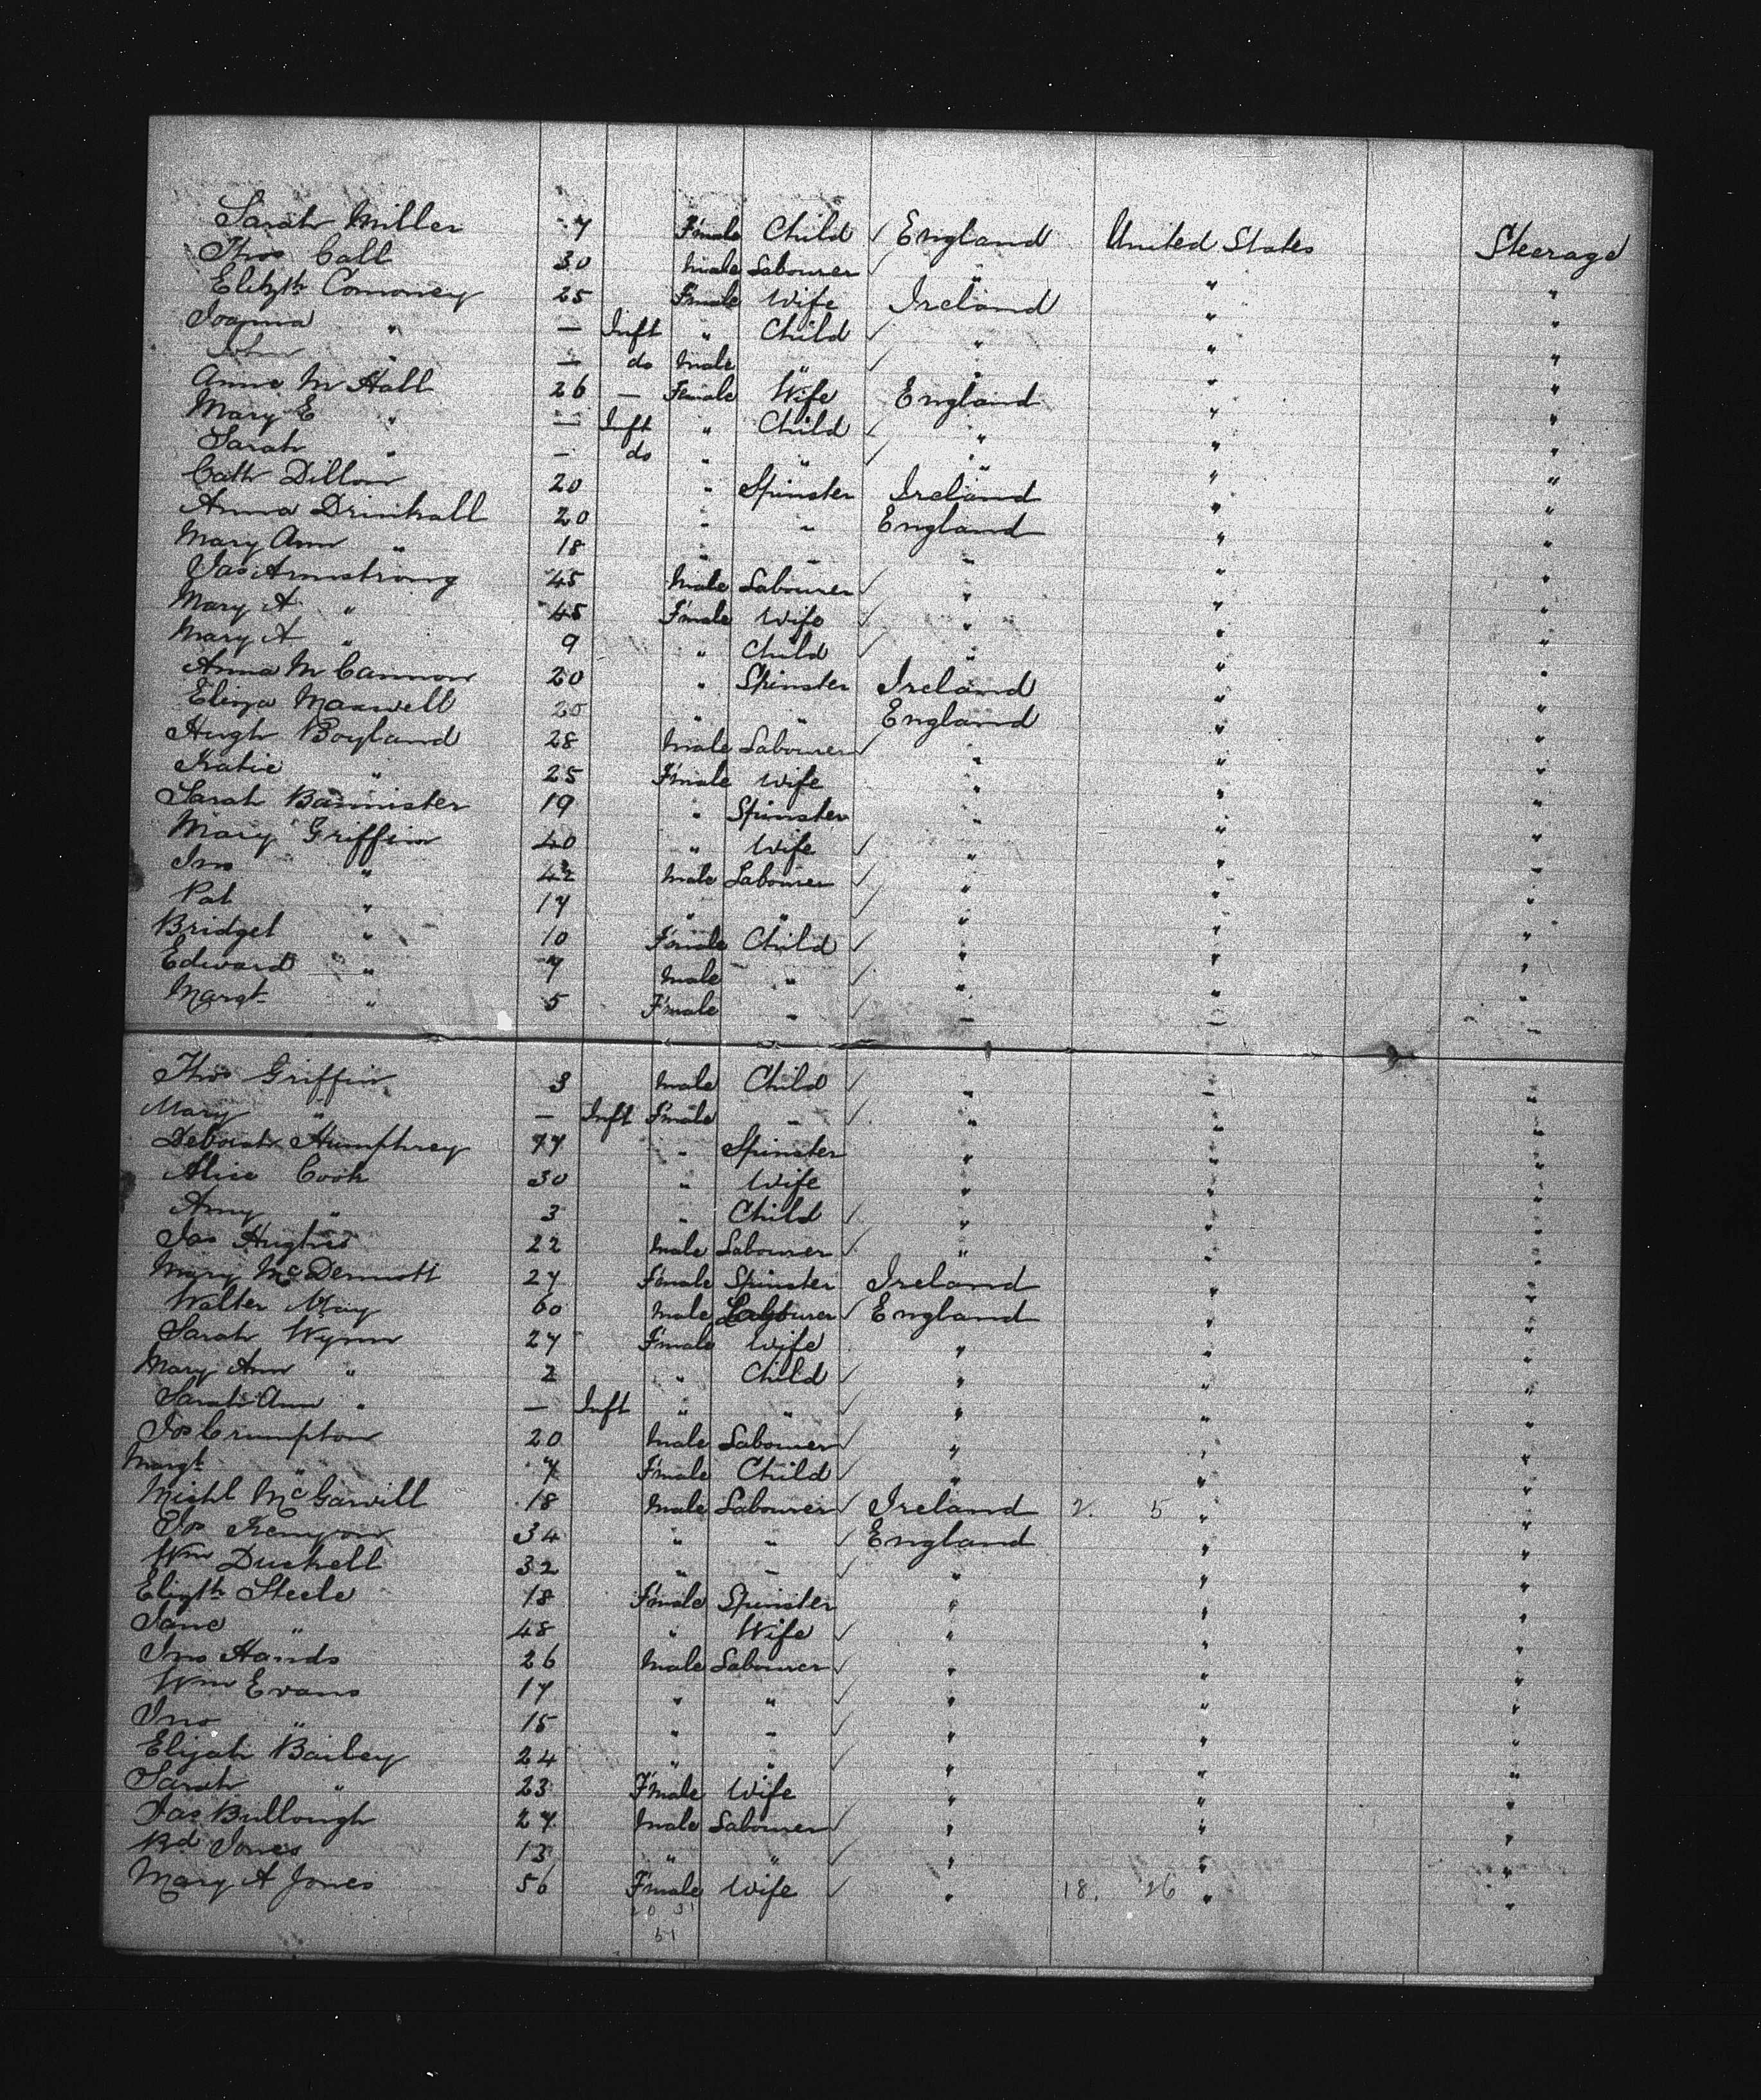 Sarah Miller 7 Female Child ✓ England United States Steerage
Thos Call 30 Male Labourer ✓ " " "
Elizth Comoney 25 Female Wife Ireland " "
Joanna " — Inft " Child ✓ " " "
John " — do Male " ✓ " " "
Anna M Hall 26 — Female Wife England " "
Mary E " — Inft " Child ✓ " " "
Sarah " — do " " ✓ " " "
Cath Dillon 20 " Spinster Ireland " "
Anna Drinkall 20 " " England " "
Mary Ann " 18 " " " " "
Jas Armstrong 45 Male Labourer ✓ " " "
Mary A " 45 Female Wife ✓ " " "
Mary A " 9 " Child ✓ " " "
Anna McCannon 20 " Spinster Ireland " "
Eliza Maxwell 25 " " England " "
Hugh Boyland 28 Male Labourer ✓ " " "
Katie " 25 Female Wife " " "
Sarah Bannister 19 " Spinster " " "
Mary Griffin 40 " Wife ✓ " " "
Jno " 42 Male Labourer ✓ " " "
Pat " 17 " " ✓ " " "
Bridget " 10 Female Child ✓ " " "
Edward " 7 Male " ✓ " " "
Margt " 5 Female " ✓ " " "
Thos Griffin 3 Male Child ✓ " " "
Mary " — Inft Female " ✓ " " "
Deborah Humphrey 77 " Spinster " " "
Alice Cook 30 " Wife " " "
Amy " 3 " Child ✓ " " "
Jas Hughes 22 Male Labourer ✓ " " "
Mary McDermott 27 Female Spinster Ireland " "
Walter May 60 Male Labourer ✓ England " "
Sarah Wynn 27 Female Wife " " "
Mary Ann " 2 " Child ✓ " " "
Sarah Ann " — Inft " " ✓ " " "
Jos Crumpton 20 Male Labourer ✓ " " "
Margt " 7 Female Child ✓ " " "
Michl McGarvill 18 Male Labourer ✓ Ireland 2. 5 " "
Jos Kenyon 34 " " ✓ England " "
Wm Duckell 32 " " ✓ " " "
Elizth Steele 18 Female Spinster " " "
Jane " 48 " Wife ✓ " " "
Jno Hands 26 Male Labourer ✓ " " "
Wm Evans 17 " " ✓ " " "
Jno " 15 " " ✓ " " "
Elijah Bailey 24 " " ✓ " " "
Sarah " 23 Female Wife " " "
Jas Bullough 27 Male Labourer ✓ " " "
Rd Jones 13 " " ✓ " " "
Mary A Jones 56 Female Wife ✓ " 18. 26 " "
20 31
51